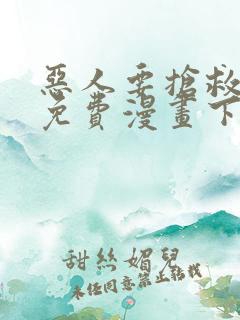 惡人要搶救
免費漫畫下
甜絲媚兒
未任同意禁止轉載